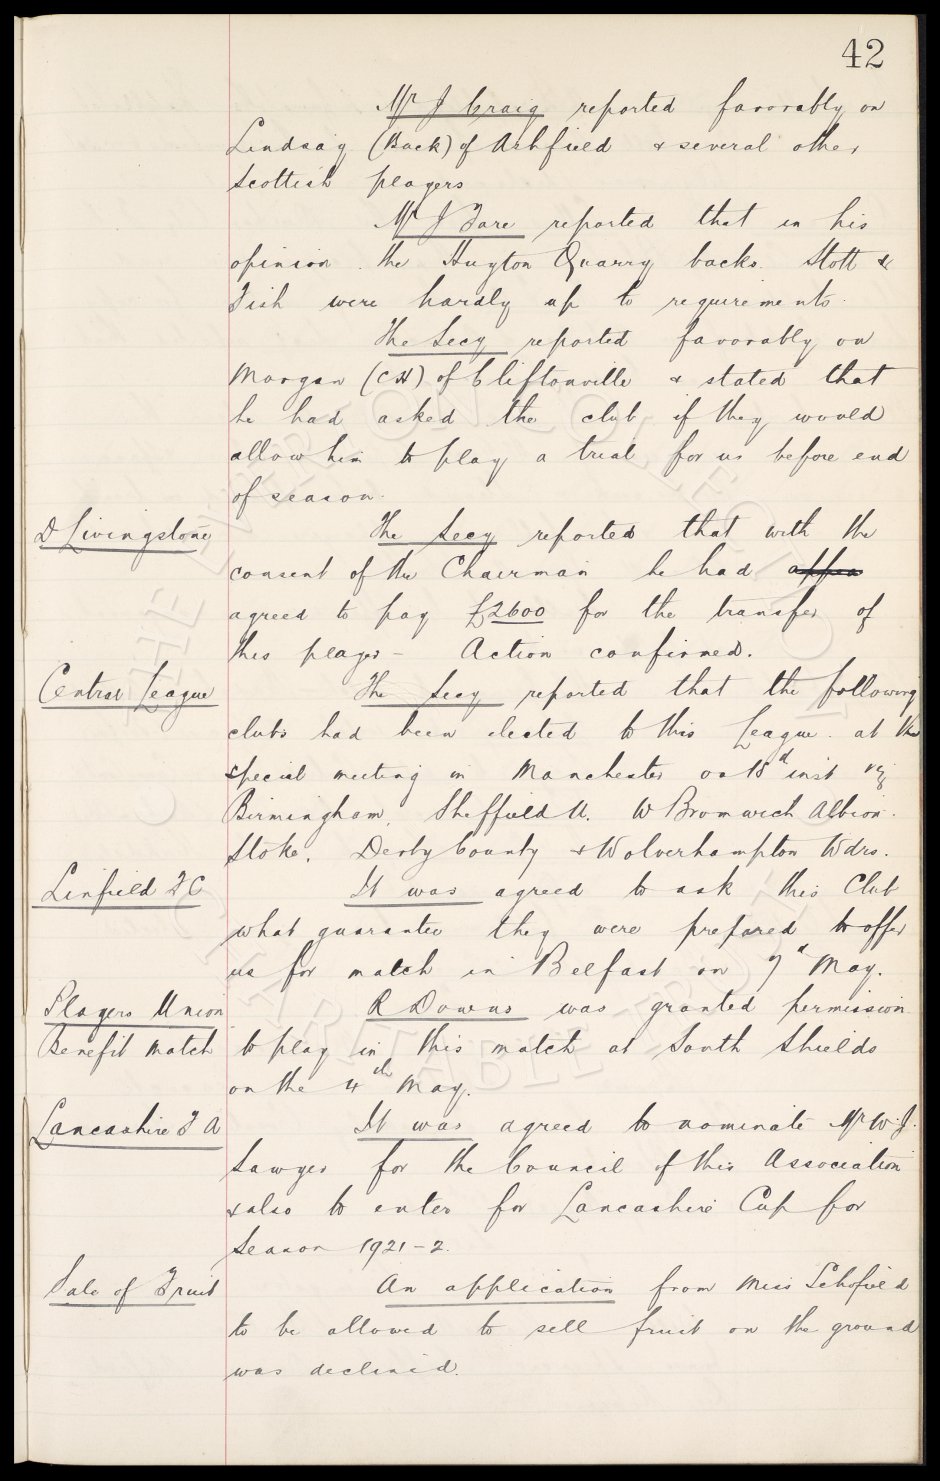 42
Mr J Craig reported favorably on
Lindsay (Back) of Ashfield & several other
Scottish players
Mr J Fare reported that in his
opinion the Huyton Quarry backs Stott &
Fish were hardly up to requirements.
The Secy reported favorably on
Morgan (CH) of Cliftonville & stated that
he had asked the club if they would
allow him to play a trial for us before end
of season.
D Livingstone The Secy reported that with the
consent of the Chairman he had appea
agreed to pay £2600 for the transfer of
this player - Action confirmed.
Central League The Secy reported that the following
clubs had been elected to this League at the
special meeting in Manchester on 18th inst viz
Birmingham, Sheffield U. W Bromwich Albion.
Stoke, Derby County & Wolverhampton Wdrs.
Linfield FC It was agreed to ask this Club
what guarantee they were prepared to offer
us for match in Belfast on 7th May.
Players Union R Downs was granted permission
Benefit Match to play in this match at South Shields
on the 4th May.
Lancashire F A It was agreed to nominate Mr W.J.
Sawyer for the Council of this Association
& also to enter for Lancashire Cup for
Season 1921-2.
Sale of Fruit An application from Miss Schofield
to be allowed to sell fruit on the ground
was declined.
THE EVERTON COLLECTION
CHARITABLE TRUST